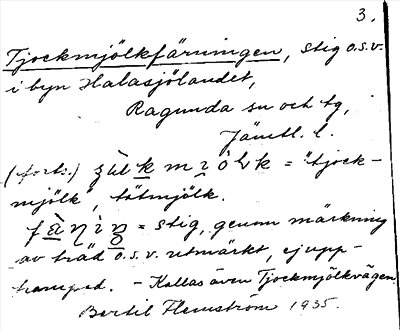 3.
Tjockmjölkfärningen, stig o.s.v.
i byn Halasjölandet,
Ragunda sn och tg,
Jämtl. l.
(forts.) = "tjock-
mjölk", tätmjölk.
= stig, genom märkning
av träd o.s.v. utmärkt, ej upp-
trampad. - Kallas även Tjockmjölkvägen
Bertil Flemström 1935.